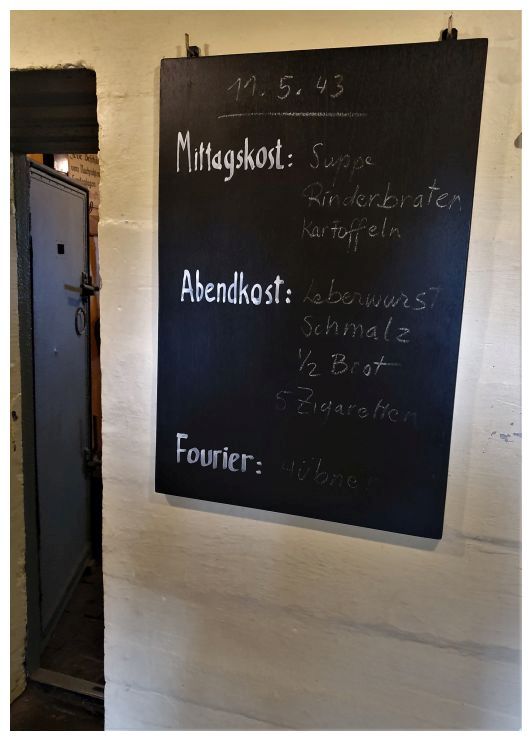 11.5.43
Mittagskost: Suppe
Rinderbraten
Kartoffeln
Abendkost: Leberwurst
Schmalz
1/2 Brot
5 Zigaretten
Fourier: Hübner